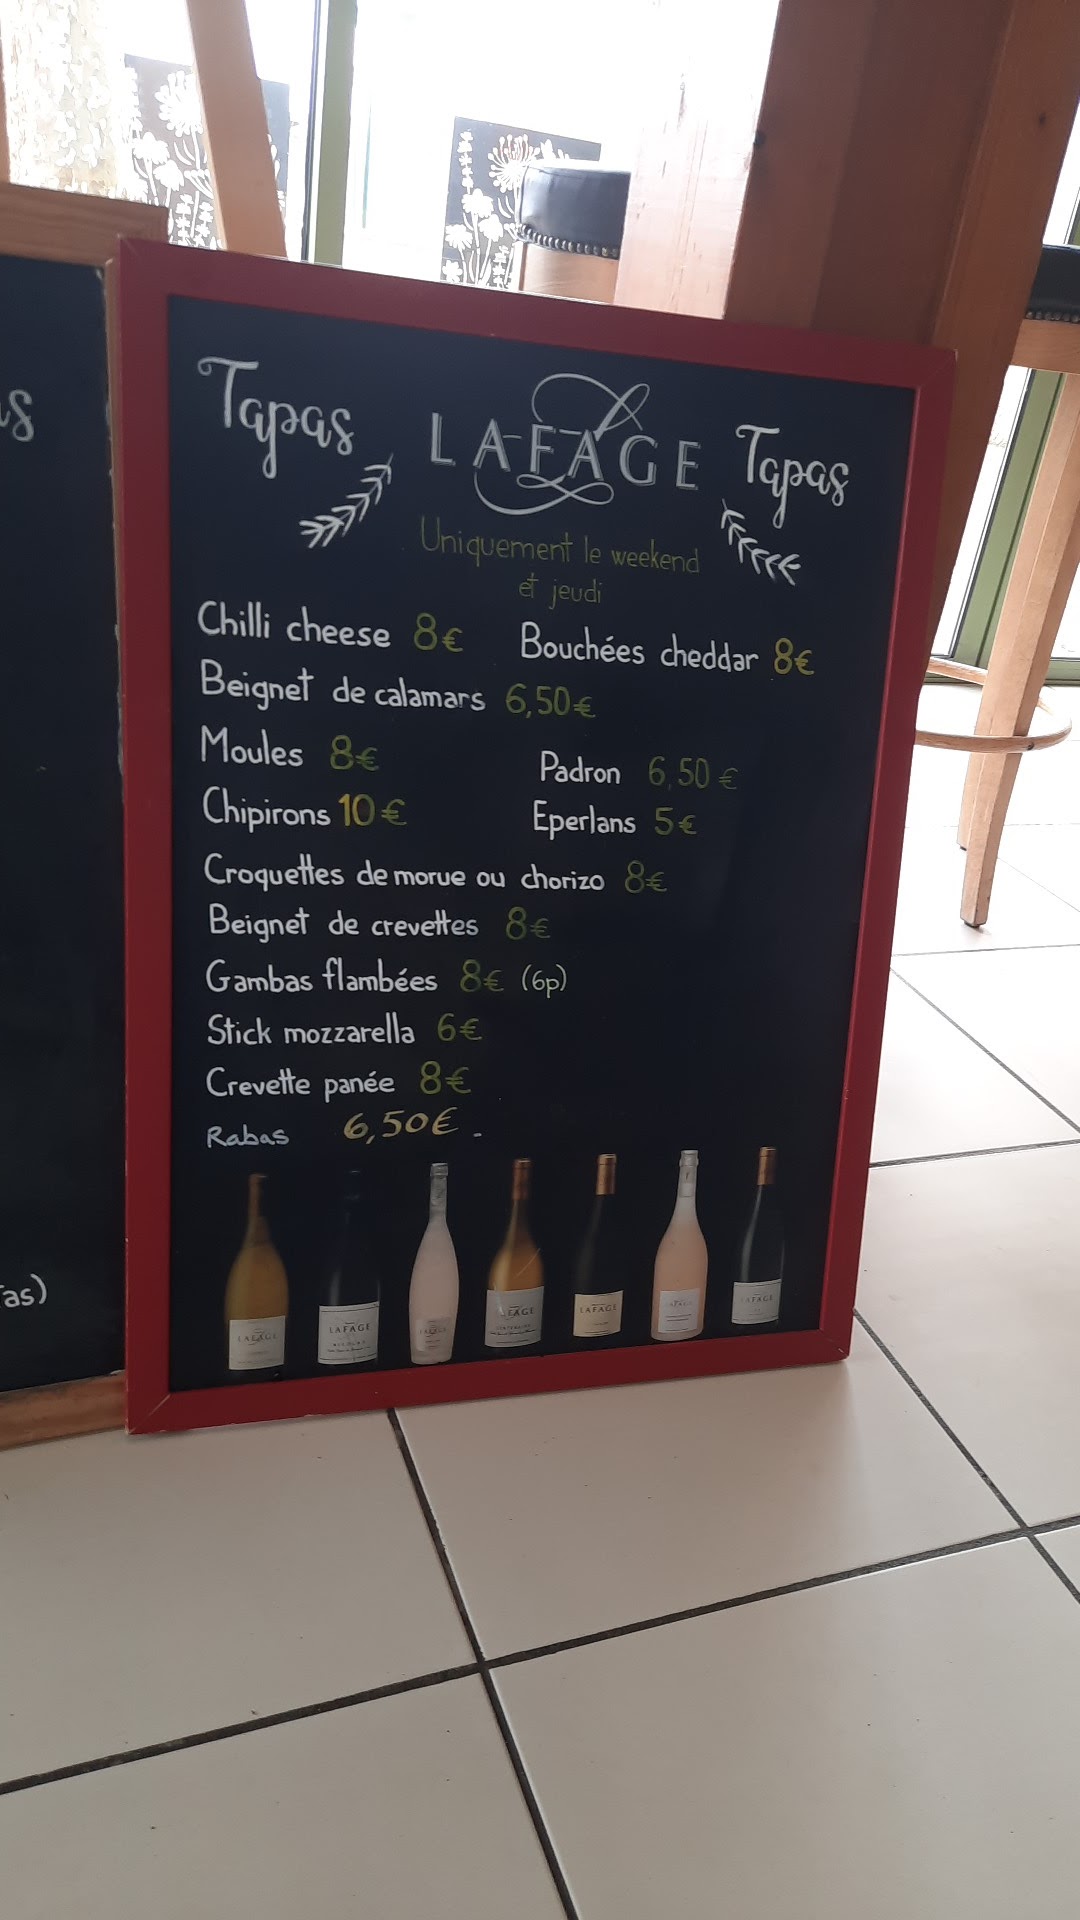 Tapas LAFAGE Tapas
Uniquement le weekend
et jeudi
Chilli cheese 8€ Bouchées cheddar 8€
Beignet de calamars 6,50€
Moules 8€ Padron 6,50 €
Chipirons 10€ Eperlans 5€
Croquettes de morue ou chorizo 8€
Beignet de crevettes 8€
Gambas flambées 8€ (6p)
Stick mozzarella 6€
Crevette panée 8€
Rabas 6,50€.
LAFAGE LAFAGE LAFAGE LAFAGE LAFAGE LAFAGE LAFAGE